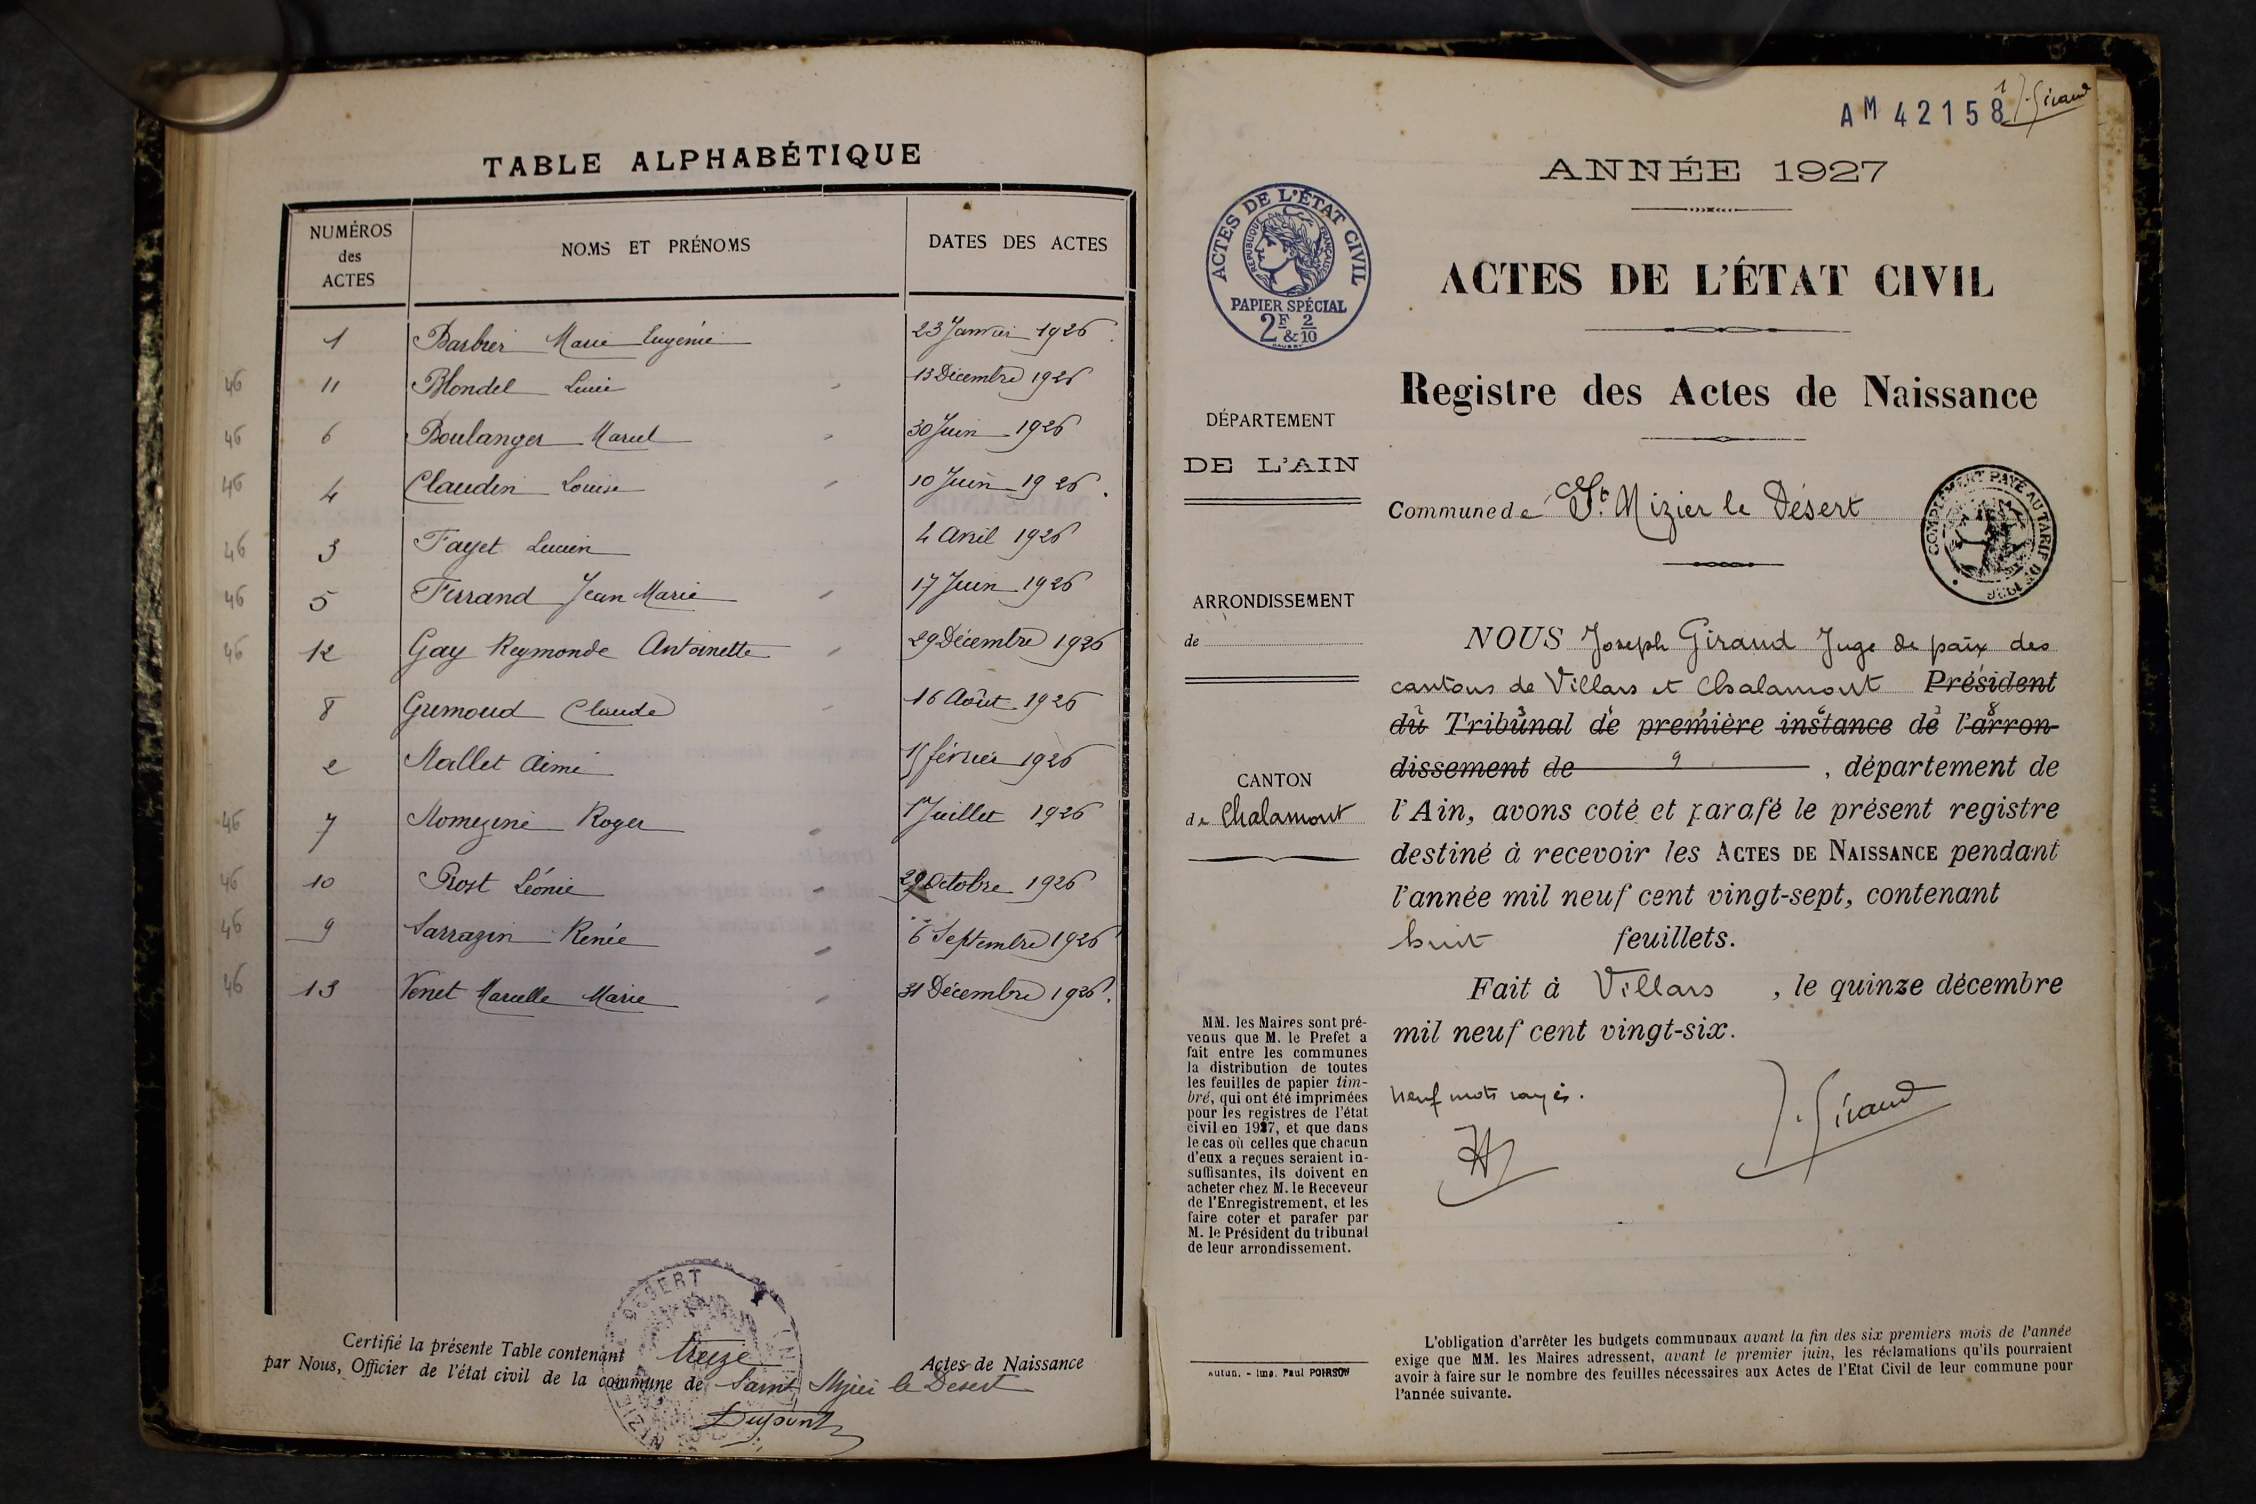 TABLE ALPHABÉTIQUE
NUMÉROS
des
ACTES
NOMS ET PRÉNOMS
DATES DES ACTES
1 Barbier Marie Eugénie 23 Janvier 1926
46 11 Blondel Lucie 13 Décembre 1926
46 6 Boulanger Marcel 30 Juin 1926
46 4 Claudin Louise 10 Juin 1926.
46 3 Fayet Lucien 4 Avril 1926
46 5 Ferrand Jean Marie 17 Juin 1926
46 12 Gay Reymonde Antoinette 29 Décembre 1926
8 Claude 16 Août 1926
2 Mallet Aimé 15 février 1926
46 7 Roger 1er Juillet 1926
46 10 Prost Léonie Octobre 1926
46 9 Sarrazin Renée 6 Septembre 1926
46 13 Venet Marcelle Marie 31 Décembre 1926.
Certifié la présente Table contenant treize Actes de Naissance
par Nous, Officier de l'état civil de la commune de Saint Nizier le Désert
Dupont
AM 42158
1 J. Giraud
ANNÉE 1927
ACTES DE L'ÉTAT CIVIL
RÉPUBLIQUE FRANÇAISE
PAPIER SPÉCIAL
2F & 2/10
ACTES DE L'ÉTAT CIVIL
Registre des Actes de Naissance
DÉPARTEMENT
DE L'AIN
Commune de St. Nizier le Désert
COMPLÉMENT PAYÉ AU TARIF DE 1926
ARRONDISSEMENT
de
CANTON
de Chalamont
NOUS Joseph Giraud Juge de paix des
cantons de Villars et Chalamont Président
du Tribunal de première instance de l'arron-
dissement de 9, département de
l'Ain, avons coté et parafé le présent registre
destiné à recevoir les ACTES DE NAISSANCE pendant
l'année mil neuf cent vingt-sept, contenant
huit feuillets.
Fait à Villars, le quinze décembre
mil neuf cent vingt-six.
neuf mots rayés.
J. Giraud
MM. les Maires sont pré-
venus que M. le Prefet a
fait entre les communes
la distribution de toutes
les feuilles de papier tim-
bré, qui ont été imprimées
pour les registres de l'état
civil en 1927, et que dans
le cas où celles que chacun
d'eux a reçues seraient in-
suffisantes, ils doivent en
acheter chez M. le Receveur
de l'Enregistrement, et les
faire coter et parafer par
M. le Président du tribunal
de leur arrondissement.
Autun. - Imp. Paul POIRSON
L'obligation d'arrêter les budgets communaux avant la fin des six premiers mois de l'année
exige que MM. les Maires adressent, avant le premier juin, les réclamations qu'ils pourraient
avoir à faire sur le nombre des feuilles nécessaires aux Actes de l'Etat Civil de leur commune pour
l'année suivante.